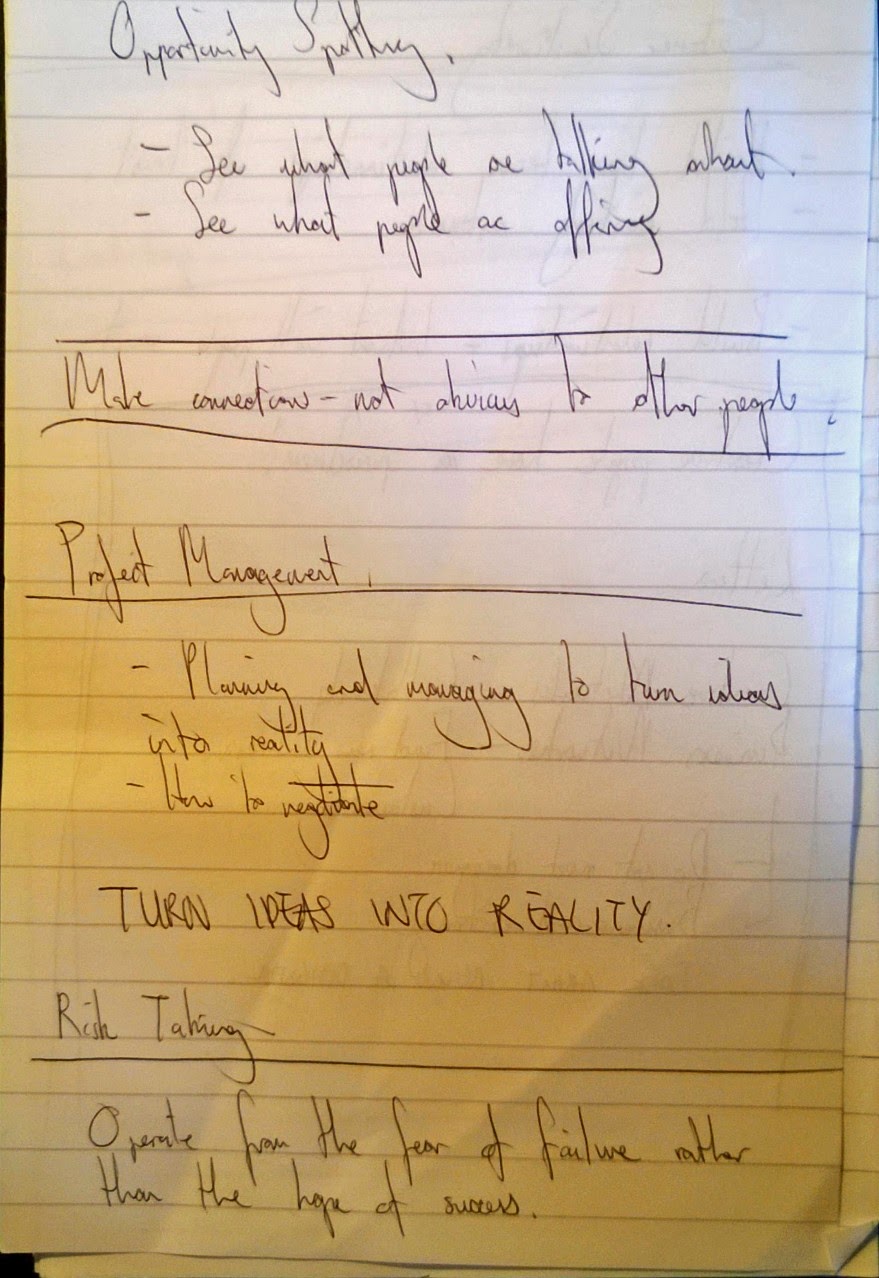 Opportunity Spotting.
- See what people are talking about.
- See what people are offering
Make connections - not obvious to other people.
Project Management.
- Planning and managing to turn ideas
into reality
- How to negotiate
TURN IDEAS INTO REALITY.
Risk Taking
Operate from the fear of failure rather
than the hope of success.